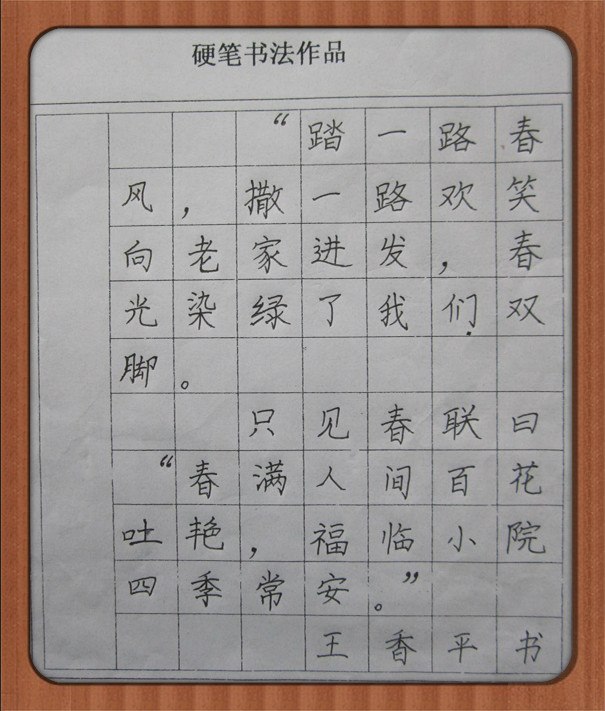 硬笔书法作品
“踏一路春
风，撒一路欢笑
向老家进发，春
光染绿了我们双
脚。
只见春联曰
“春满人间百花
吐艳，福临小院
四季常安。”
王香平书